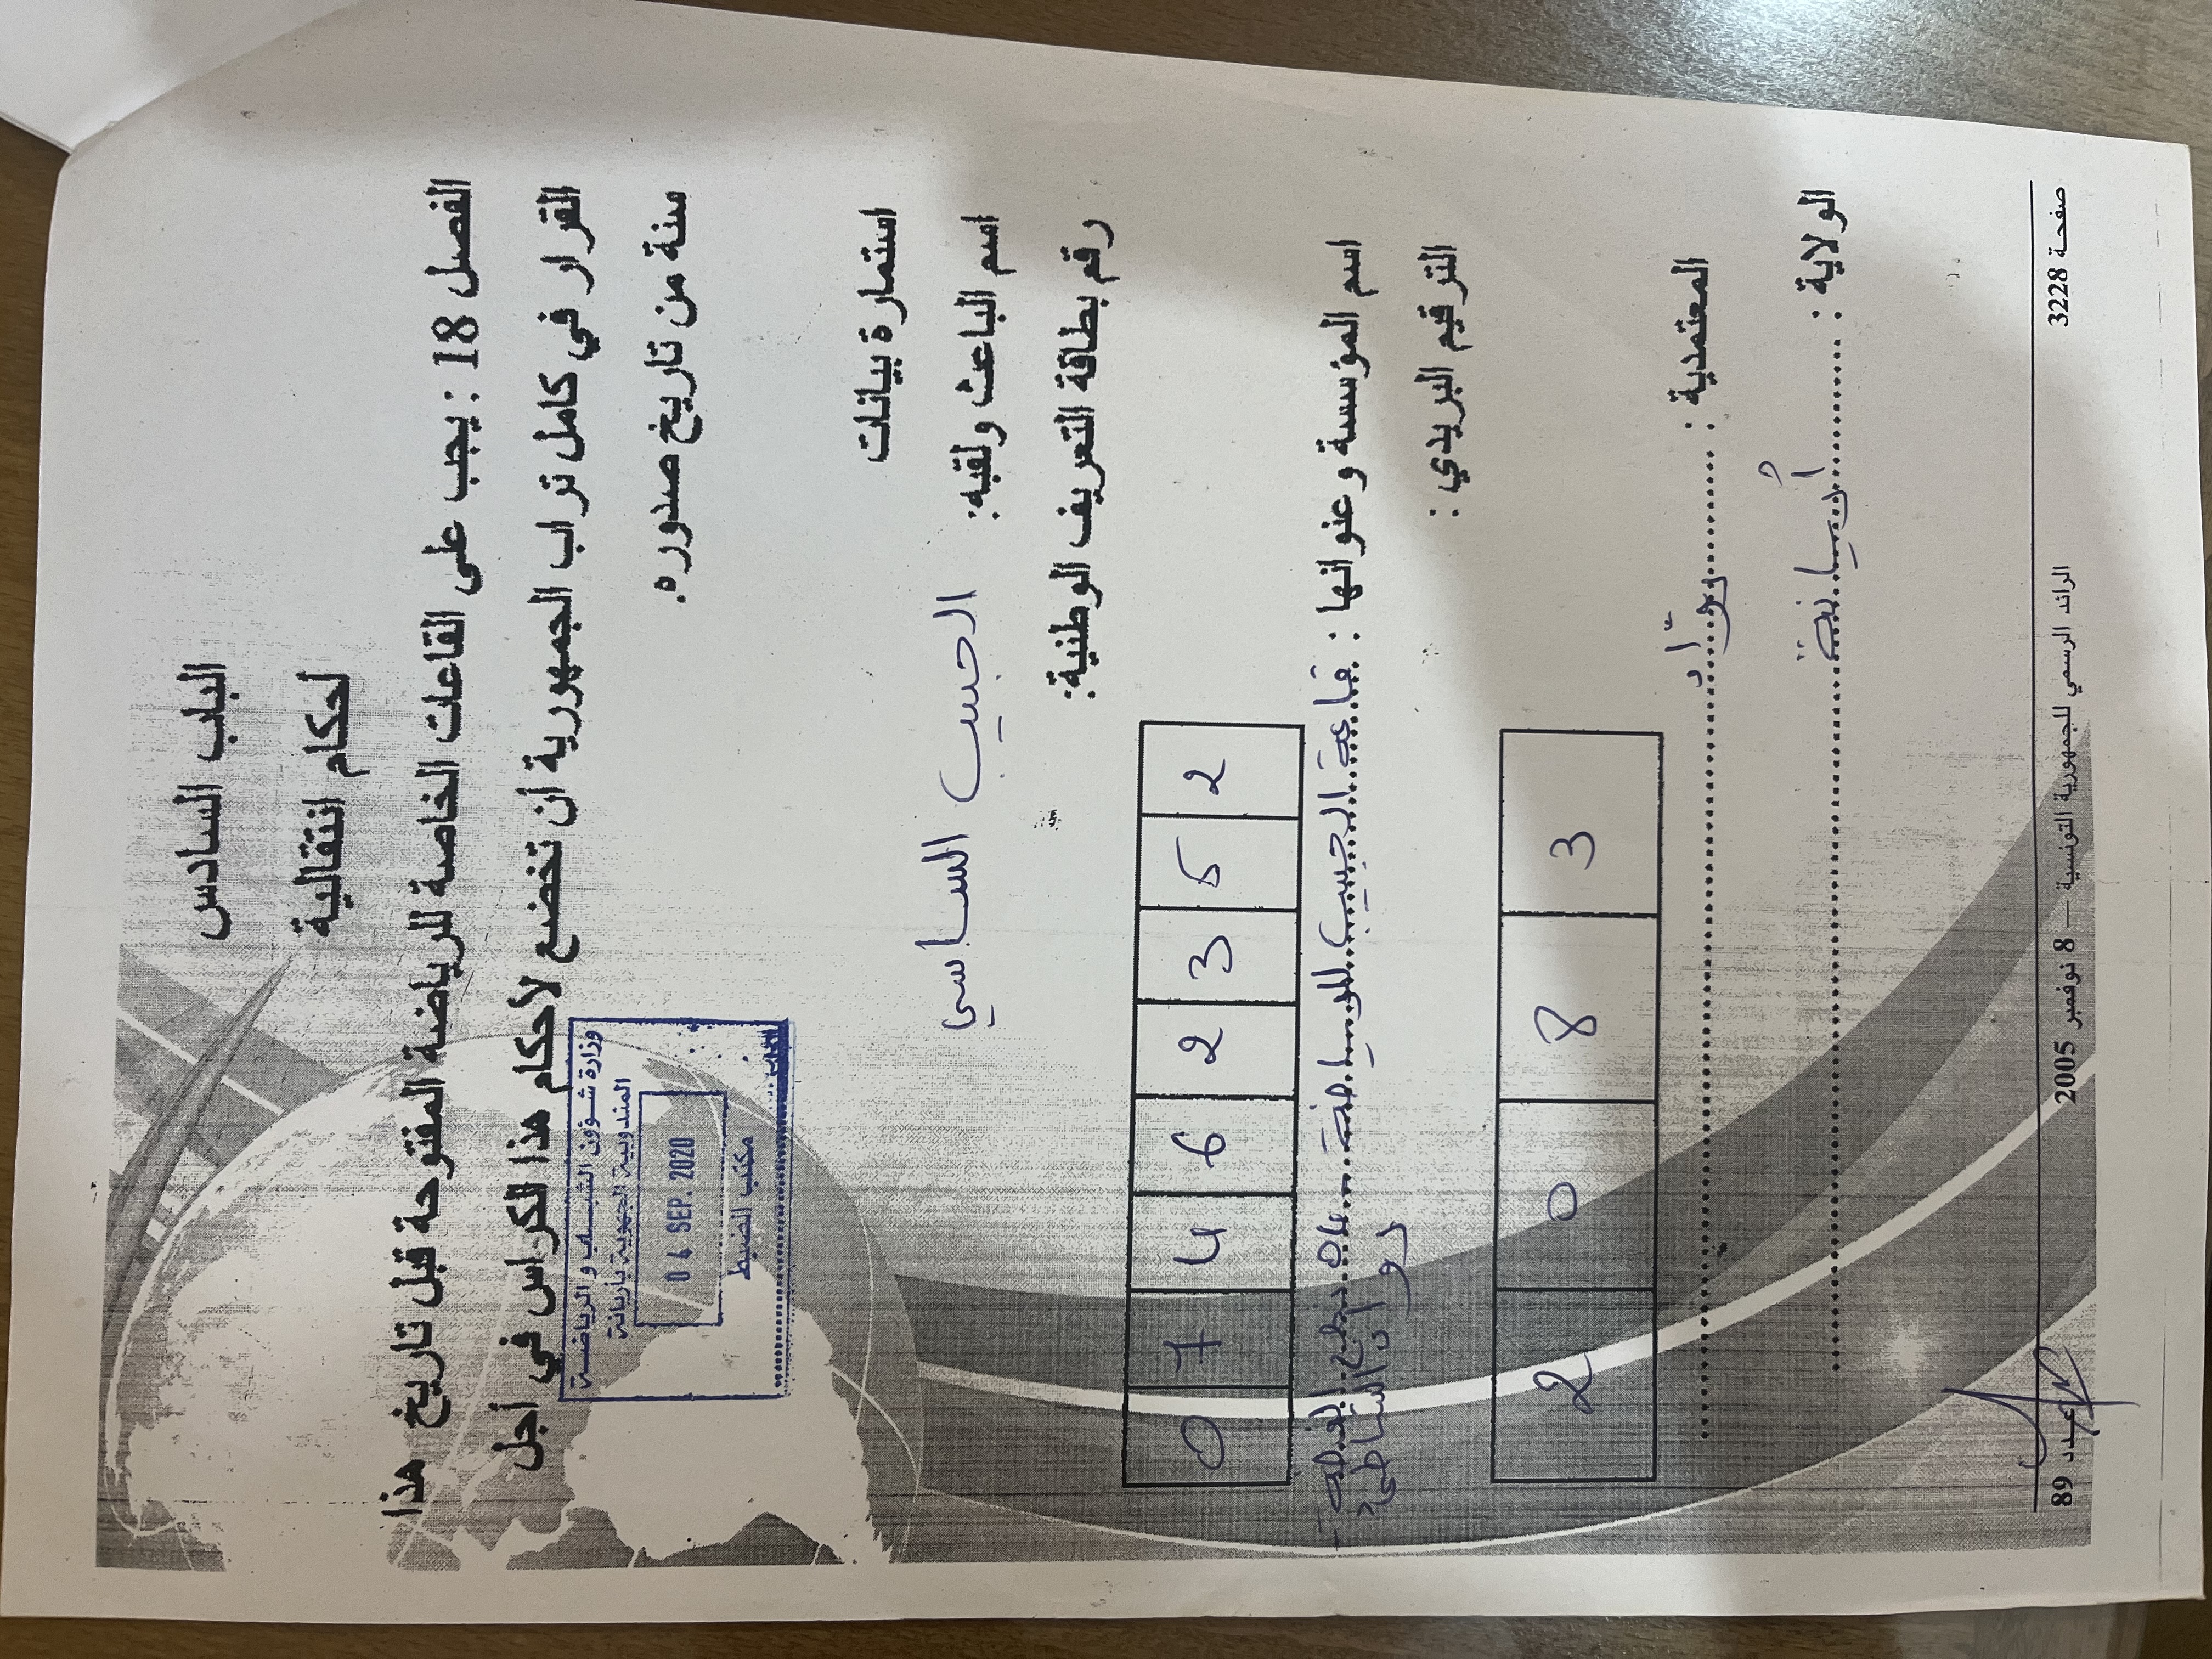 الباب السادس
أحكام انتقالية
الفصل 18 : يجب على القاعات الخاصة للرياضة المفتوحة قبل تاريخ هذا
القرار في كامل تراب الجمهورية أن تخضع لأحكام هذا الكراس في أجل
سنة من تاريخ صدوره.
وزارة شؤون الشباب و الرياضة
المندوبية الجهوية بأريانة
04 SEP. 2020
مكتب الضبط
استمارة بيانات
اسم الباعث ولقبه: الحبيب الساسي
رقم بطاقة التعريف الوطنية:
0 7 4 6 2 3 5 2
اسم المؤسسة و عنوانها : قاعة الحبيب للرياضة
رواد الشاطئ
الترقيم البريدي :
2 0 8 3
المعتمدية : روّاد
الولاية : أريانة
صفحة 3228
الرائد الرسمي للجمهورية التونسية — 8 نوفمبر 2005
عدد 89